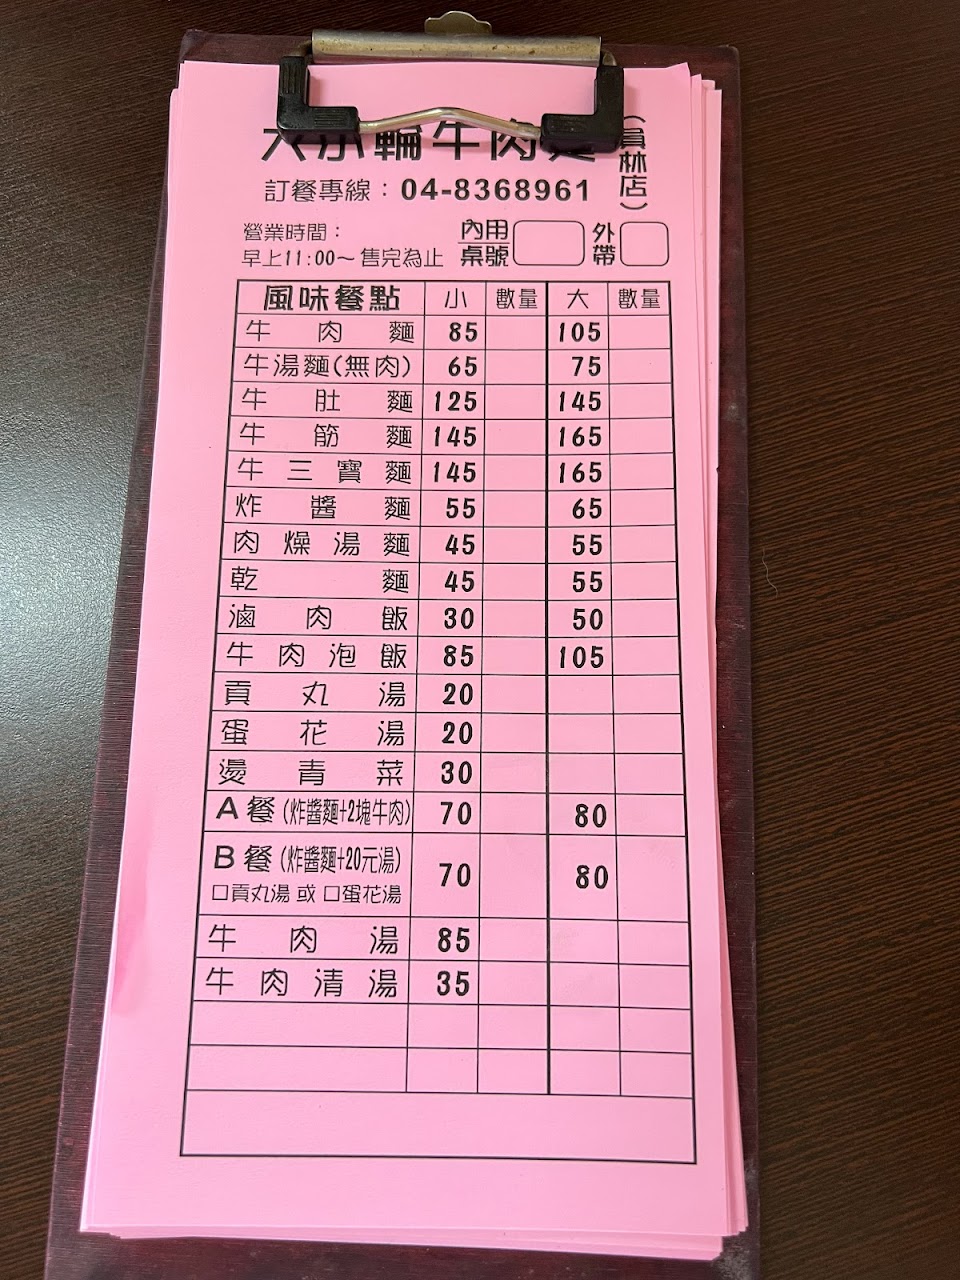 大小輪牛肉麵
(員林店)
訂餐專線：04-8368961
營業時間：
早上11:00～售完為止
內用
桌號
外帶
風味餐點 小 數量 大 數量
牛肉麵 85 105
牛湯麵(無肉) 65 75
牛肚麵 125 145
牛筋麵 145 165
牛三寶麵 145 165
炸醬麵 55 65
肉燥湯麵 45 55
乾麵 45 55
滷肉飯 30 50
牛肉泡飯 85 105
貢丸湯 20
蛋花湯 20
燙青菜 30
A餐(炸醬麵+2塊牛肉) 70 80
B餐(炸醬麵+20元湯) 70 80
□貢丸湯 或 □蛋花湯
牛肉湯 85
牛肉清湯 35